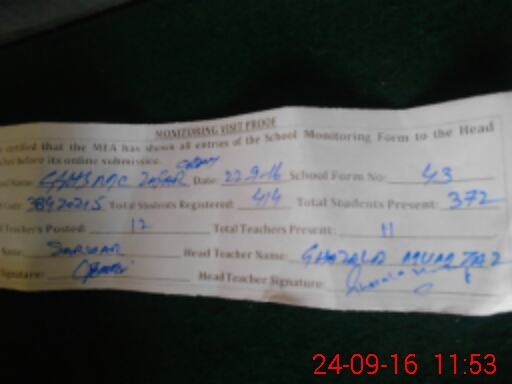 MONITORING VISIT PROOF
certified that the MEA has shown all entries of the School Monitoring Form to the Head
before its online submission.
Name: Date: 22-9-16 School Form No: 43
Code: 38420215 Total Students Registered: 414 Total Students Present: 372
Teachers Posted: 12 Total Teachers Present: 11
Name: SARWAR Head Teacher Name: GHAZALA MUMTAZ
Signature: Head Teacher Signature:
24-09-16 11:53